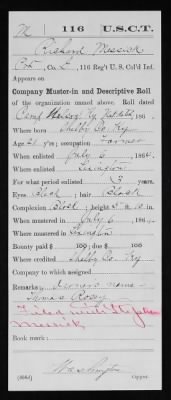 M | 116 | U.S.C.T.
Richard Messick
Pvt, Co. L, 116 Reg't U. S. Col'd Inf.
Appears on
Company Muster-in and Descriptive Roll
of the organization named above. Roll dated
Camp Nelson Ky 186
Where born Shelby Co. Ky.
Age 21 y'rs; occupation Farmer
When enlisted July 6, 1864.
Where enlisted
For what period enlisted 3 years.
Eyes Black; hair Black
Complexion Black; height 5 ft. in.
When mustered in July 6, 1864.
Where mustered in
Bounty paid $ 100; due $ 100
Where credited Shelby Co. Ky
Company to which assigned
Remarks: Owner's name
Thomas
Filed with
Messick
Book mark:
Washington
Copyist.